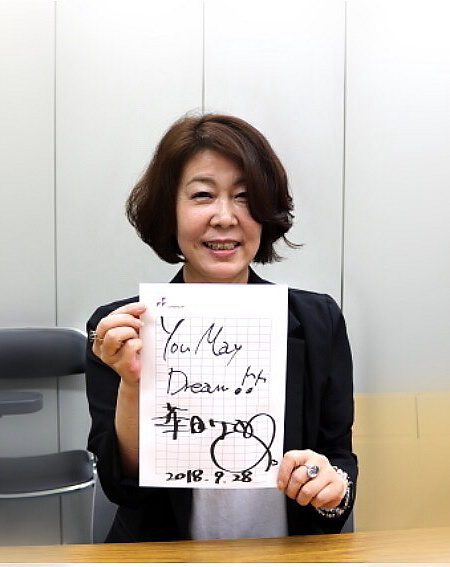 You May
Dream!!
2018.9.28